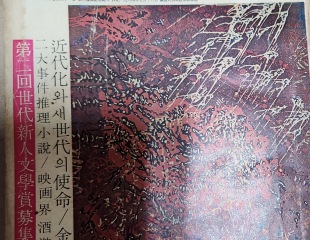 近代化와 새世代의 使命/金
二大事件推理小說/映画界酒
第二回世代新人文學賞募集